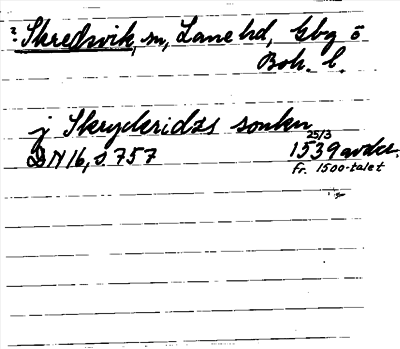 ? Skredsvik, sn, Lane hd, Gbg o
Boh. l.
j Skryderidzs sonkn
25/3
DN 16, s. 757 1539 avskr.
fr. 1500-talet